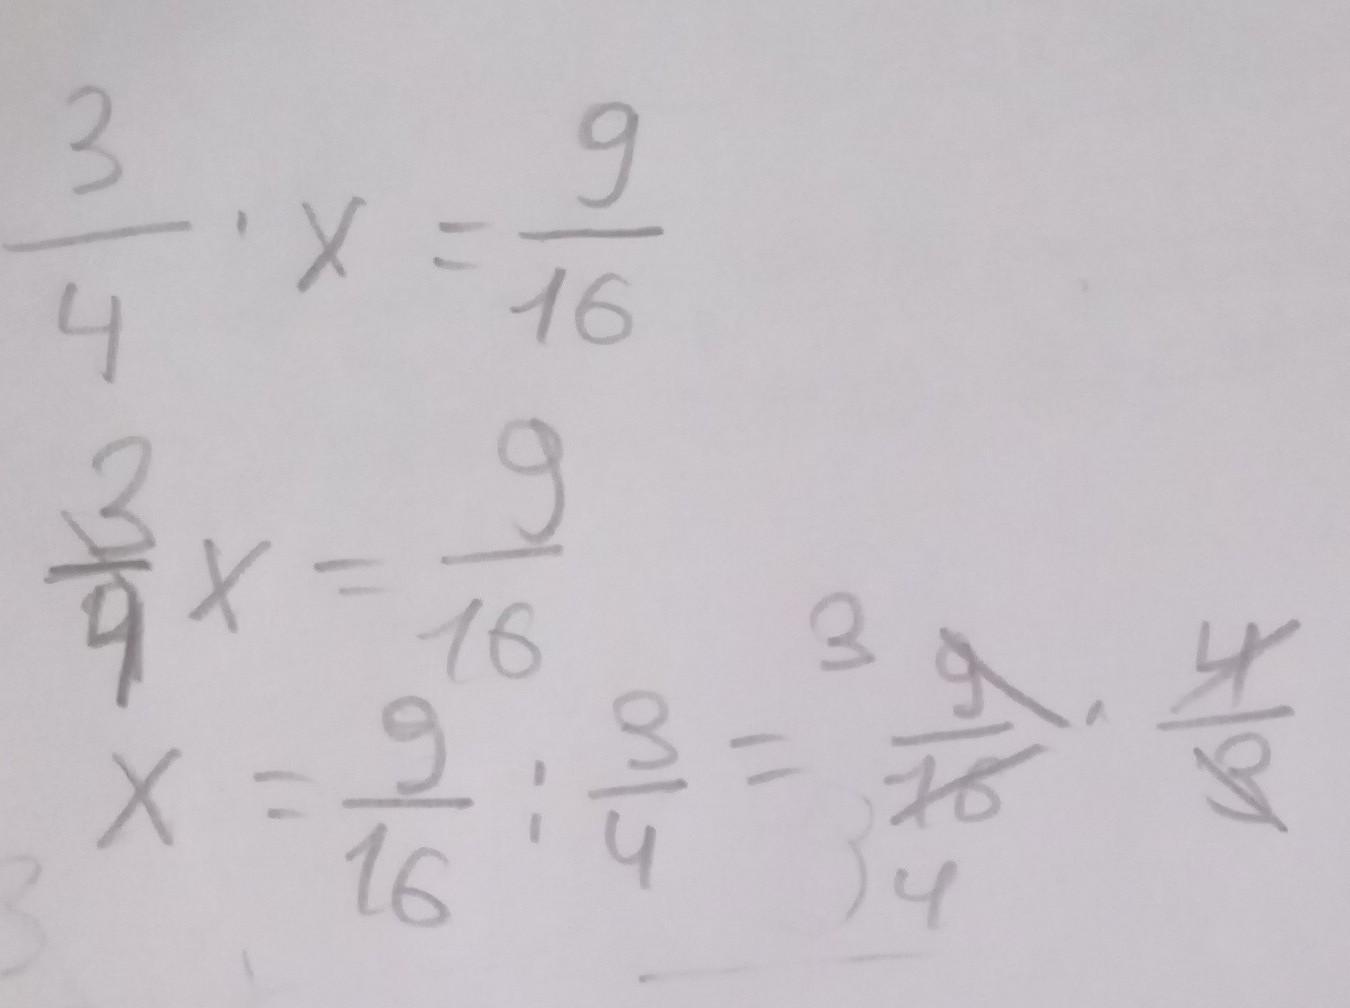 3/4 · x = 9/16
3/4 x = 9/16
x = 9/16 : 3/4 = 3 9/16 4 · 4/3